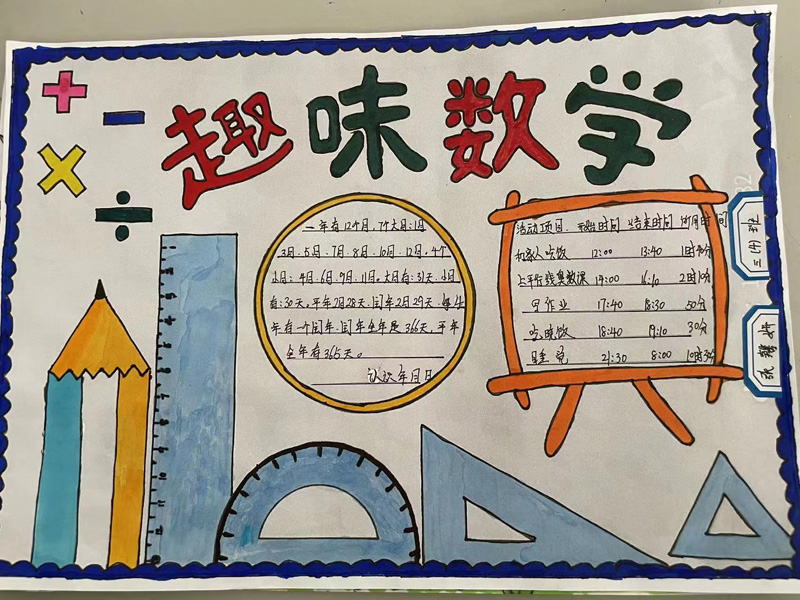 趣味数学
一年有12个月,7个大月:1月
3月、5月、7月、8月、10月、12月,4个
小月:4月、6日、9月、11月。大月有:31天,小月
有:30天,平年2月28天,闰年2月29天,每4
年有一个闰年,闰年全年是366天,平年
全年有365天。
认识年月日
活动项目 开始时间 结束时间 所用时间
和家人吃饭 12:00 13:40 1时40分
上平行线奥数课 14:00 16:10 2时10分
写作业 17:40 18:30 50分
吃晚饭 18:40 19:10 30分
睡觉 21:30 8:00 10时30分
三(4)班